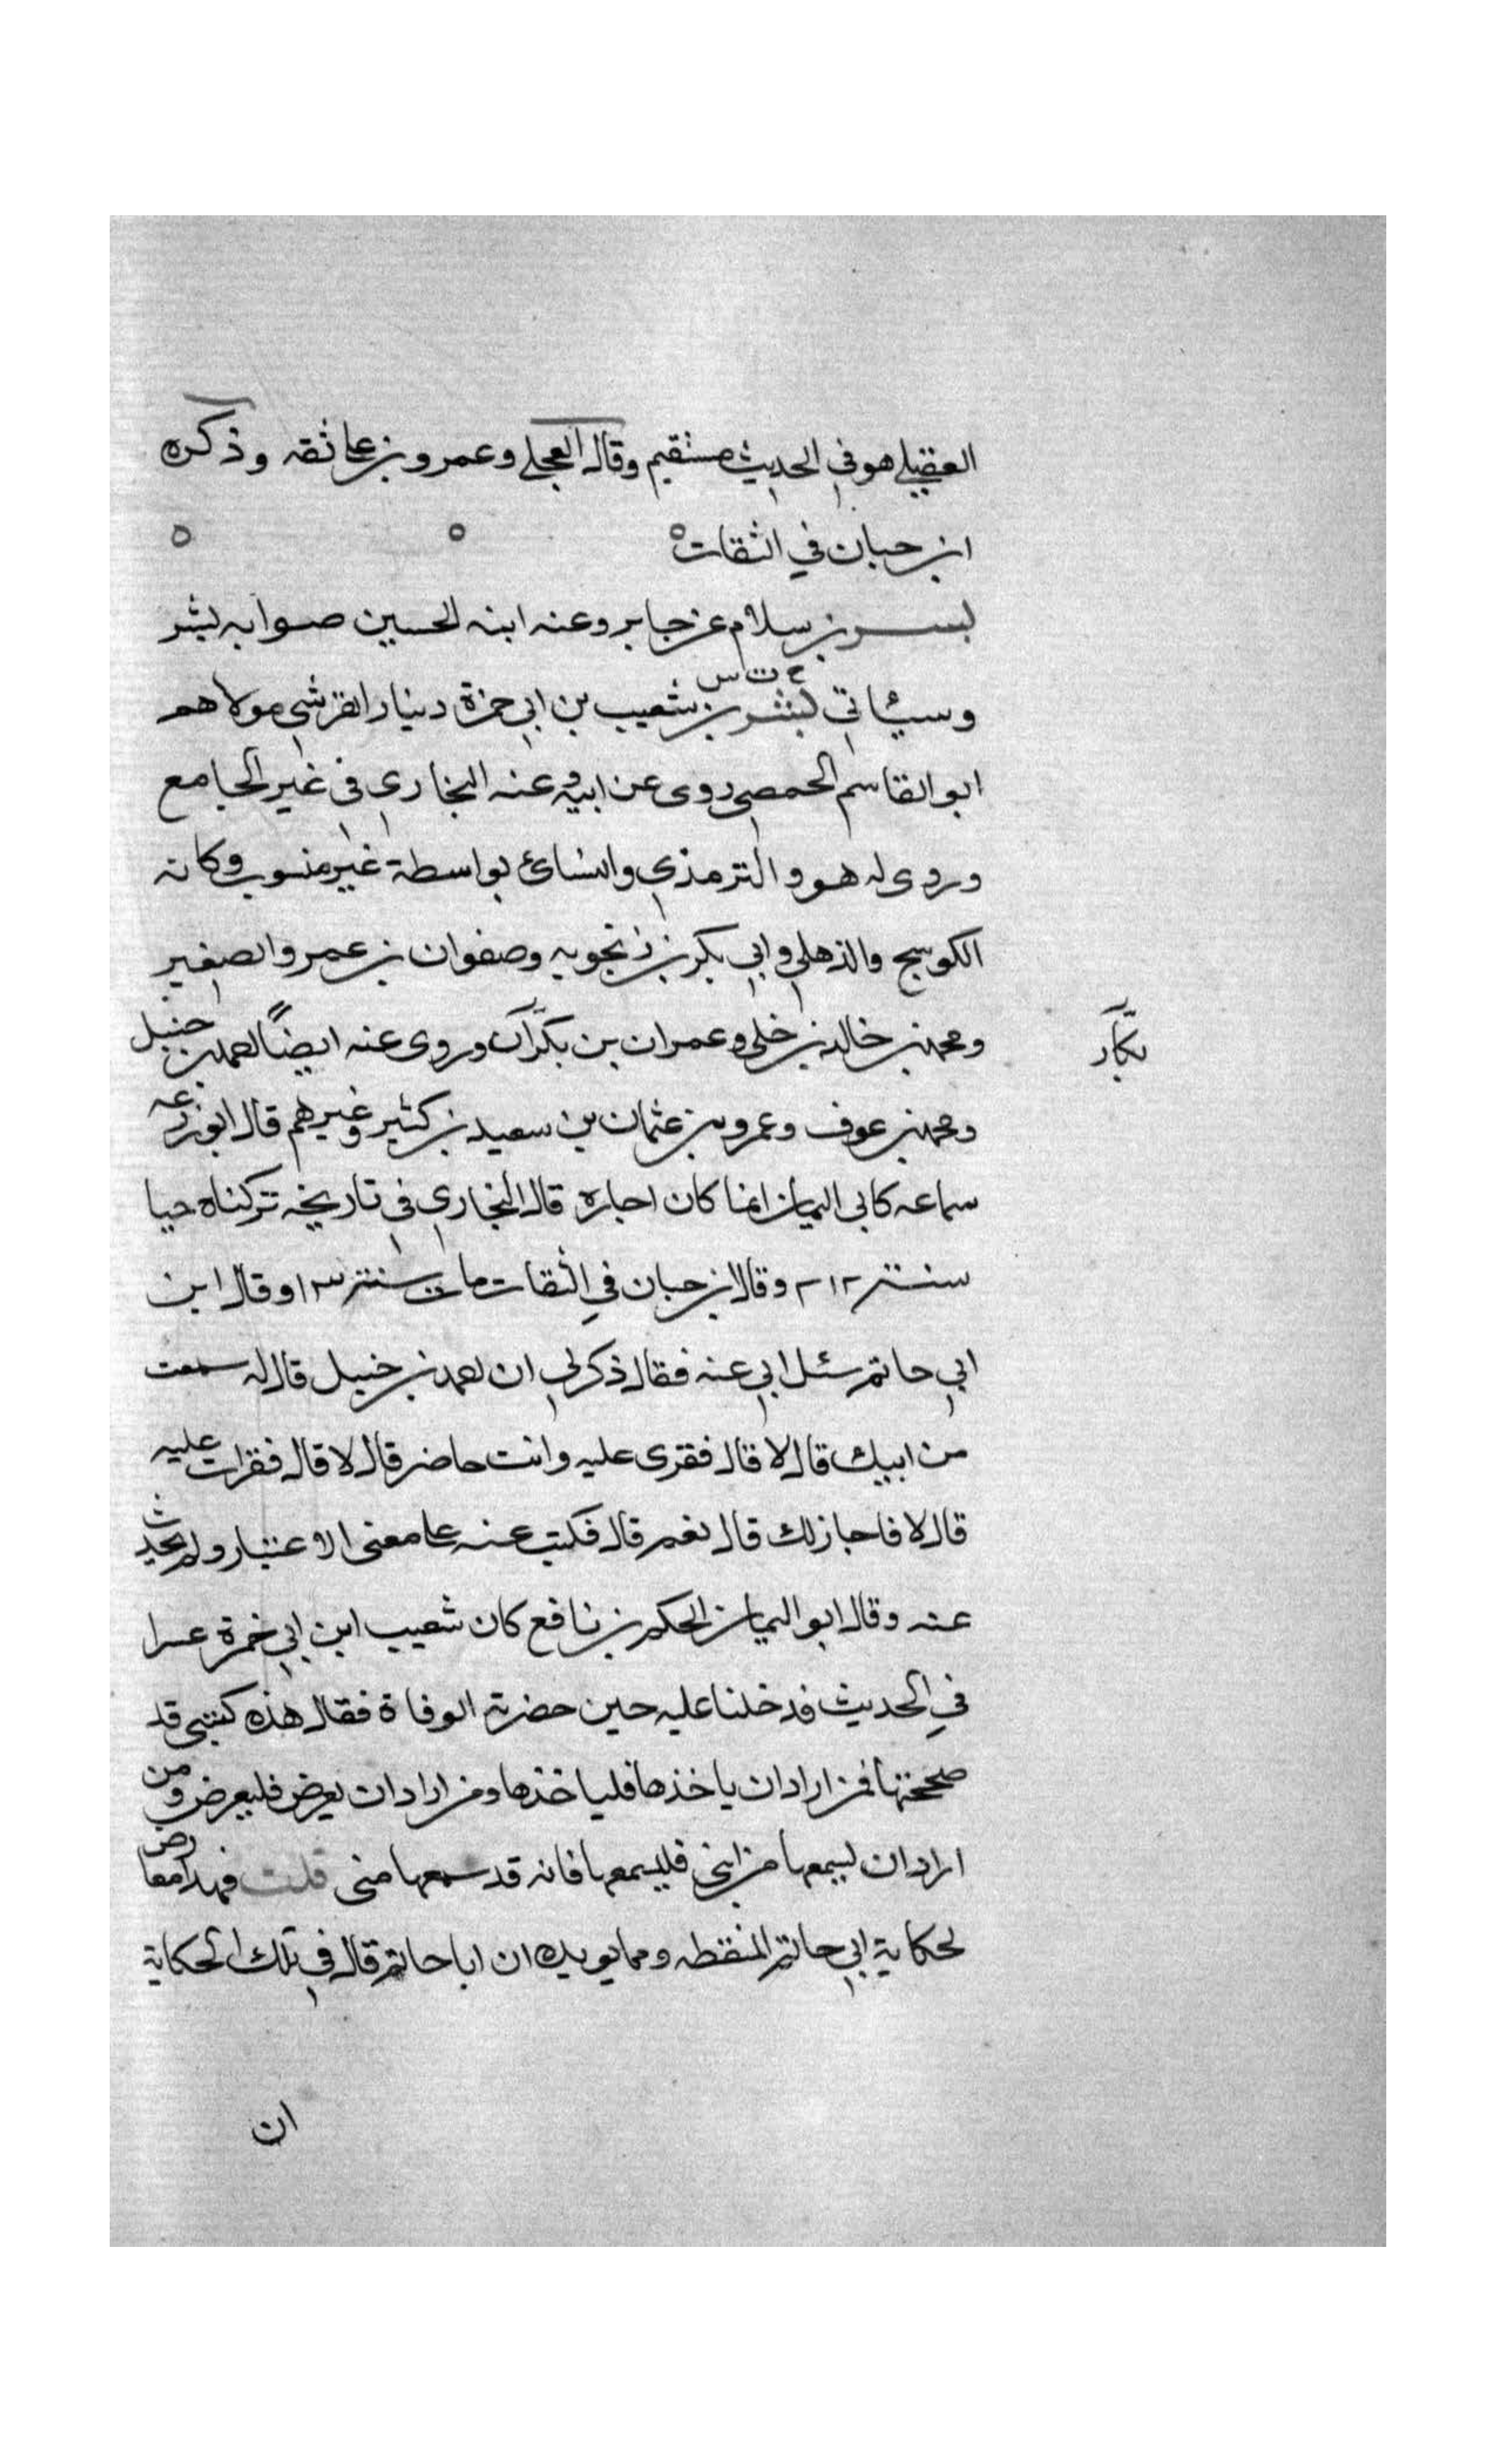 العقيلي هو في الحديث مستقيم وقال العجلي وعمرو بن علي ثقه وذكره
ابن حبان في الثقات
بسر بن سلام عن جابر وعنه ابنه الحسين صوابه بشر
خ ت س
وسيأتي بشر بن شعيب بن ابي حمزة دينار القرشي مولاهم
ابو القاسم الحمصي روى عن ابيه وعنه البخاري في غير الجامع
وروى له هو والترمذي والنسائ بواسطة غير منسوب وكانه
الكوسج والذهلي وابي بكر بن زنجويه وصفوان بن عمرو الصغير
ومحمد بن خالد بن خلي وعمران بن بكار وروى عنه ايضاً احمد بن حنبل
بكار
ومحمد بن عوف وعمرو بن عثمان بن سعيد بن كثير وغيرهم قال ابو زرعه
سماعه كابي اليمان انما كان اجازه قال البخاري في تاريخه تركناه حيا
سنة ٢١٢ وقال ابن حبان في الثقات مات سنة ١٣ وقال ابن
ابي حاتم سئل ابي عنه فقال ذكر لي ان احمد بن حنبل قال له سمعت
من ابيك قال لا قال فقرى عليه وانت حاضر قال لا قال فقرات عليه
قال لا فاجاز لك قال نعم قال فكتب عنه على معنى الاعتبار ولم يحدث
عنه وقال ابو اليمان الحكم بن نافع كان شعيب ابن ابي حمزة عسرا
في الحديث فدخلنا عليه حين حضرته الوفاة فقال هذه كتبي قد
صححتها فمن اراد ان ياخذها فلياخذها ومن اراد ان يعرض فليعرض ومن
اراد ان يسمعها من ابني فليسمعها فانه قد سمعها مني قلت فهذا معارض
لحكاية ابي حاتم المنقطعه ومما يويده ان ابا حاتم قال في تلك الحكاية
ان